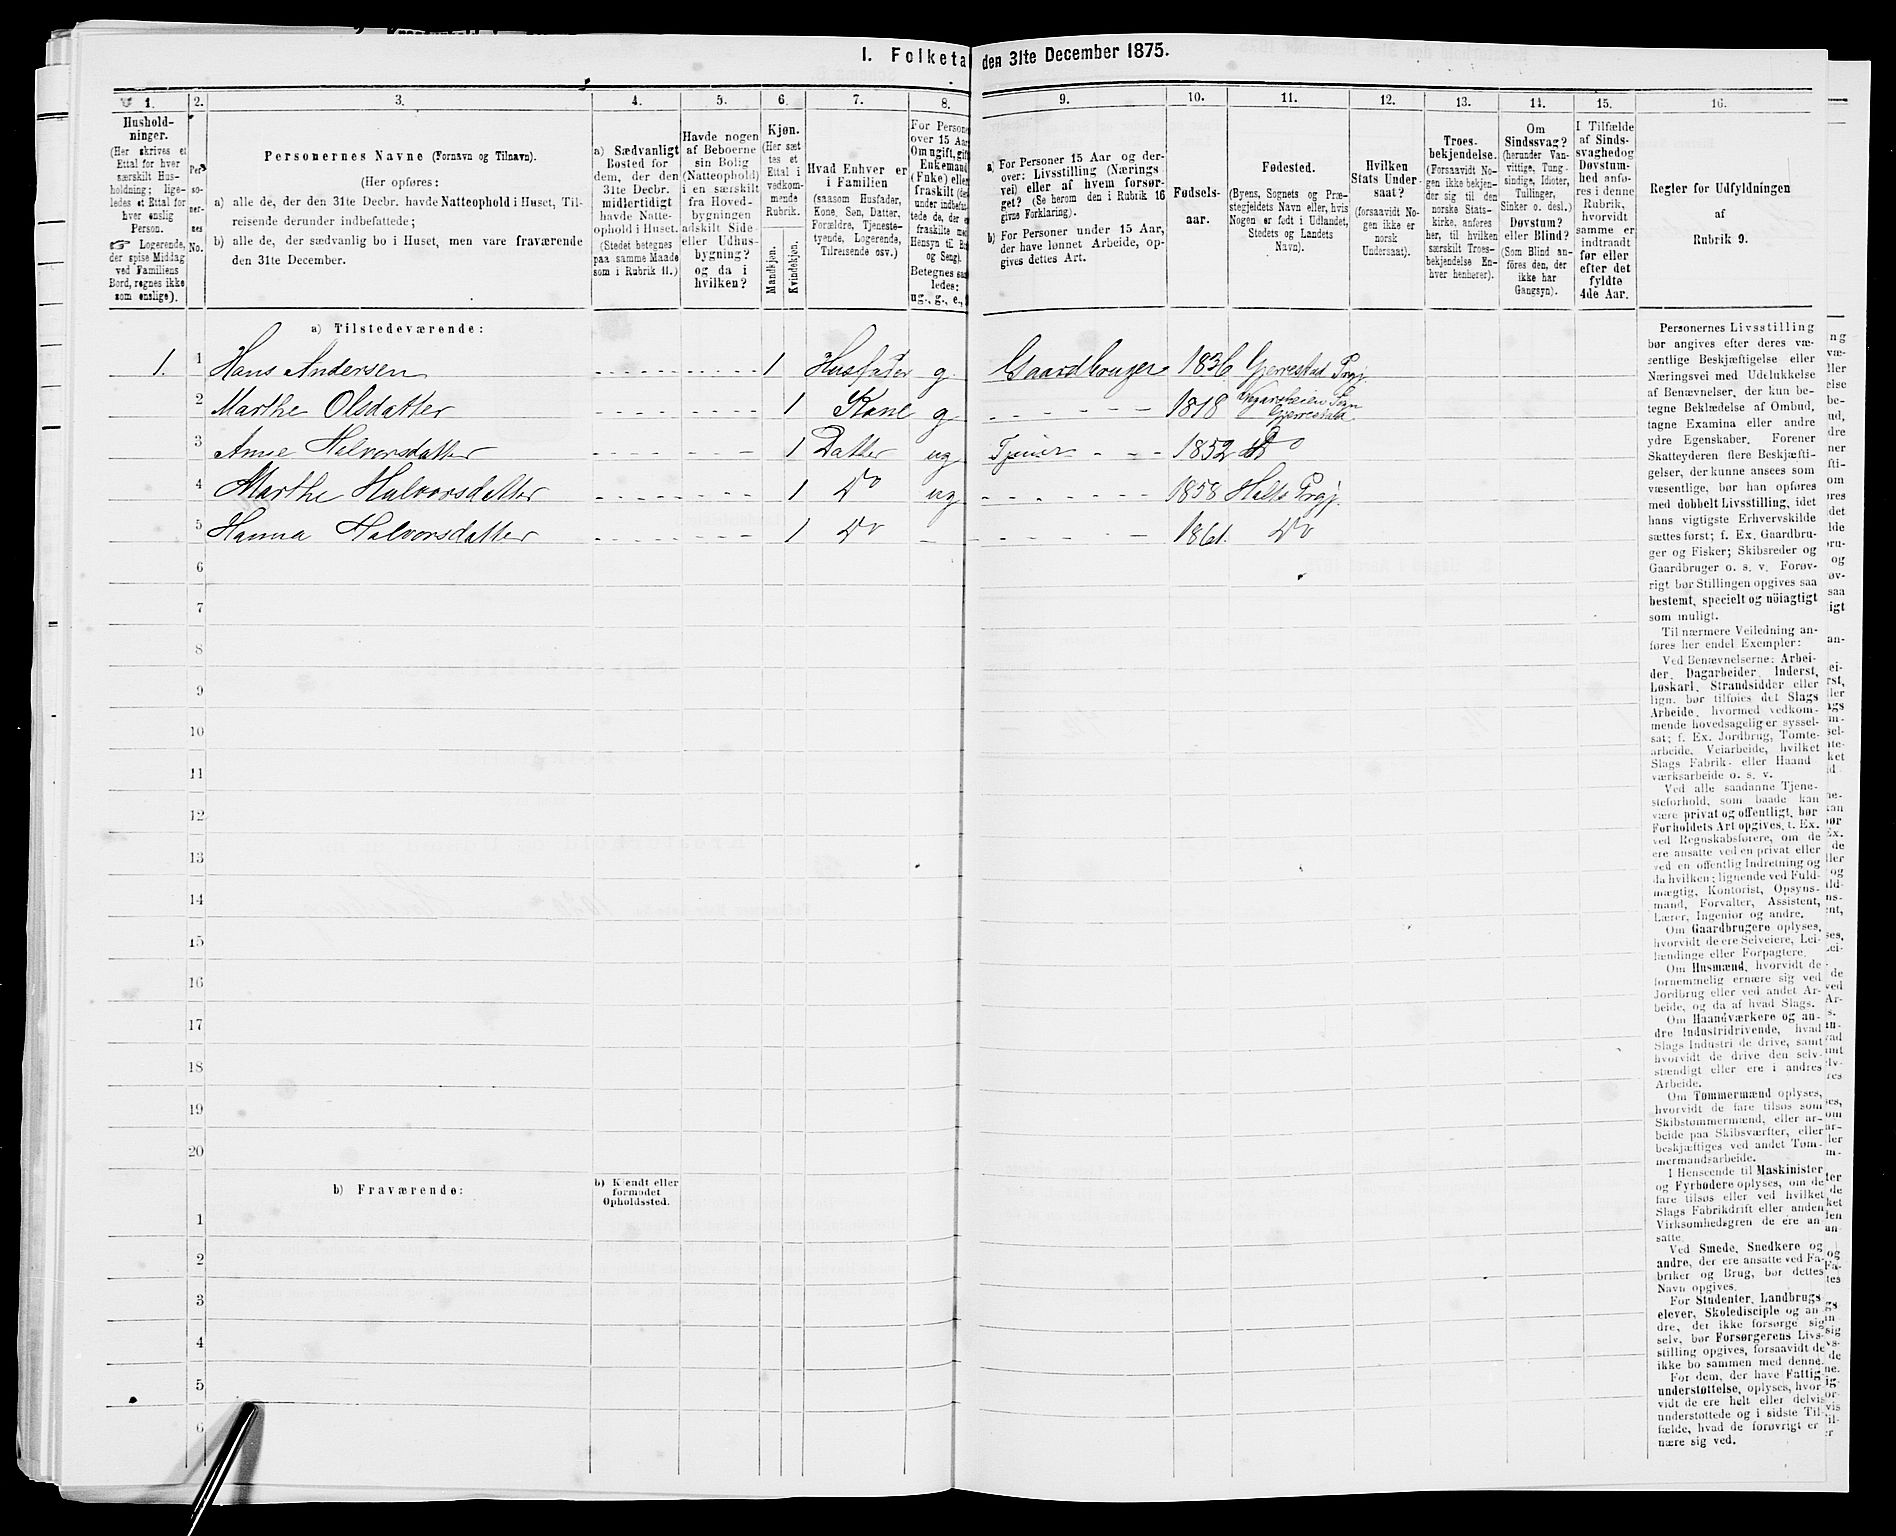 I. Folketa den 31te December 1875.
1. 2. 3. 4. 5. 6. 7. 8. 9. 10. 11. 12. 13. 14. 15. 16.
Hushold-
ninger.
(Her skrives et
Ettal for hver
særskilt Hus-
holdning; lige-
ledes et Ettal for
hver enslig
Person.
☞ Logerende,
der spise Middag
ved Familiens
Bord, regnes ikke
som enslige).
Per
so-
ner-
nes
No.
Personernes Navne (Fornavn og Tilnavn).
(Her opføres:
a) alle de, der den 31te Decbr. havde Natteophold i Huset, Til-
reisende derunder indbefattede;
b) alle de, der sædvanlig bo i Huset, men vare fraværende
den 31te December.
a) Sædvanligt
Bosted for
dem, der den
31te Decbr.
midlertidigt
havde Natte-
ophold i Huset.
(Stedet betegnes
paa samme Maade
som i Rubrik 11.)
Havde nogen
af Beboerne
sin Bolig
(Natteophold)
i en særskilt
fra Hoved-
bygningen
adskilt Side-
eller Udhus-
bygning?
og da i
hvilken?
Kjøn.
(Her sæt
tes et
Ettal i
vedkom-
mende
Rubrik.
Mandkjøn.
Kvindekjøn.
Hvad Enhver er
i Familien
(saasom Husfader,
Kone, Søn, Datter,
Forældre, Tjeneste-
tyende, Logerende,
Tilreisende osv.)
For Persone
over 15 Aar
Om ugift, gift
Enkemand
(Enke) elle
fraskilt (der
under indbefat
tede de, der e
fraskilte med
Hensyn til Bo
og Seng).
Betegnes saa
ledes:
ug., g., e.,
a) For Personer 15 Aar og der-
over: Livsstilling (Nærings
vei) eller af hvem forsør-
get? (Se herom den i Rubrik 16
givne Forklaring).
b) For Personer under 15 Aar,
der have lønnet Arbeide, op-
gives dettes Art.
Fødsels-
aar.
Fødested.
(Byens, Sognets og Præ-
stegjeldets Navn eller, hvis
Nogen er født i Udlandet,
Stedets og Landets
Navn).
Hvilken
Stats Under-
saat?
(forsaavidt No-
gen ikke er
norsk
Undersaat).
Troes-
bekjendelse.
(Forsaavidt No-
gen ikke bekjen-
der sig til den
norske Stats-
kirke, anføres
her, til hvilken
særskilt Troes-
bekjendelse En-
hver henhører).
Om
Sindssvag?
(herunder Van-
vittige, Tung-
sindige, Idioter,
Tullinger,
Sinker o. desl.)
Døvstum?
eller Blind?
(Som Blind an-
føres den, der
ikke har
Gangsyn).
I Tilfælde
af Sinds-
svaghedog
Døvstum-
hed anfø-
res i denne
Rubrik,
hvorvidt
samme er
indtraadt
før eller
efter det
fyldte
4de Aar.
Regler for Udfyldningen
af
Rubrik 9.
a) Tilstedeværende:
1. 1 Hans Andersen 1 Husfader g. Gaardbruger 1836 Gjerrestad Prgj.
2 Marthe Olsdatter 1 Kone g 1818 Vegarsheien Sogn
Gjerrestad
3 Anne Halvorsdatter 1 Datter ug Tjener 1852 Do
4 Marthe Halvorsdatter 1 Do ug 1858 Holts Prgj.
5 Hanna Halvorsdatter 1 Do 1861. Do
6
7
8
9
10
11
12
13
14
15
16
17
18
19
20
b) Fraværende:
b) Kjendt eller
formodet
Opholdssted.
1
2
3
4
5
6
Personernes Livsstilling
bør angives efter deres væ-
sentlige Beskjæftigelse eller
Næringsvei med Udelukkelse
af Benævnelser, der kun be-
tegne Beklædelse af Ombud,
tagne Examina eller andre
ydre Egenskaber. Forener
Skatteyderen flere Beskjæfti-
gelser, der kunne ansees som
væsentlige, bør han opføres
med dobbelt Livsstilling, idet
hans vigtigste Erhvervskilde
sættes først; f. Ex. Gaardbru-
ger og Fisker; Skibsreder og
Gaardbruger o. s. v. Forøv-
rigt bør Stillingen opgives saa
bestemt, specielt og nöiagtigt
som muligt.
Til nærmere Veiledning an-
føres her endel Exempler:
Ved Benævnelserne: Arbei-
der, Dagarbeider, Inderst,
Løskarl, Strandsidder eller
lign. bør tilføies det Slags
Arbeide, hvormed vedkom-
mende hovedsagelig er syssel-
sat; f. Ex. Jordbrug, Tomte-
arbeide, Veiarbeide, hvilket
Slags Fabrik- eller Haand
værksarbeide o. s. v.
Ved alle saadanne Tjene-
steforhold, som baade kan
være privat og offentligt, bør
Forholdets Art opgives, f. Ex.
ved Regnskabsførere, om de
ere ansatte ved en privat eller
ved en offentlig Indretning og
da hvilken; lignende ved Fuld-
mægtig, Kontorist, Opsyns-
mand, Forvalter, Assistent,
Lærer, Ingeniør og andre.
Om Gaardbrugere oplyses,
hvorvidt de ere Selveiere, Lei-
lændinge eller Forpagtere.
Om Husmænd, hvorvidt de
fornemmelig ernære sig ved
Jordbrug eller ved andet Ar-
beide, og da af hvad Slags.
Om Haandværkere og an-
dre Industridrivende, hvad
Slags Industri de drive, samt
hvorvidt de drive den selv-
stændigt eller ere i andres
Arbeide.
Om Tømmermænd oplyses,
hvorvidt de fare tilsøs som
Skibstømmermænd, eller ar-
beide paa Skibsværfter, eller
beskjæftiges ved andet Tøm-
mermandsarbeide.
I Henseende til Maskinister
og Fyrbødere oplyses, om de
fare tilsøs eller ved hvilket
Slags Fabrikdrift eller anden
Virksomhedsgren de ere an-
satte.
Ved Smede, Snedkere og
andre, der ere ansatte ved Fa-
briker og Brug, bør dettes
Navn opgives.
For Studenter, Landbrugs
elever, Skoledisciple og an
dre, der ikke forsørge sig
selv, bør Forsørgerens Livs-
stilling opgives, forsaavidt de
ikke bo sammen med denne.
For dem, der have Fattig-
understøttelse, oplyses, hvor-
vidt de ere helt eller delvis
understøttede og i sidste Til-
fælde, hvad de forøvrigt er
nære sig ved.